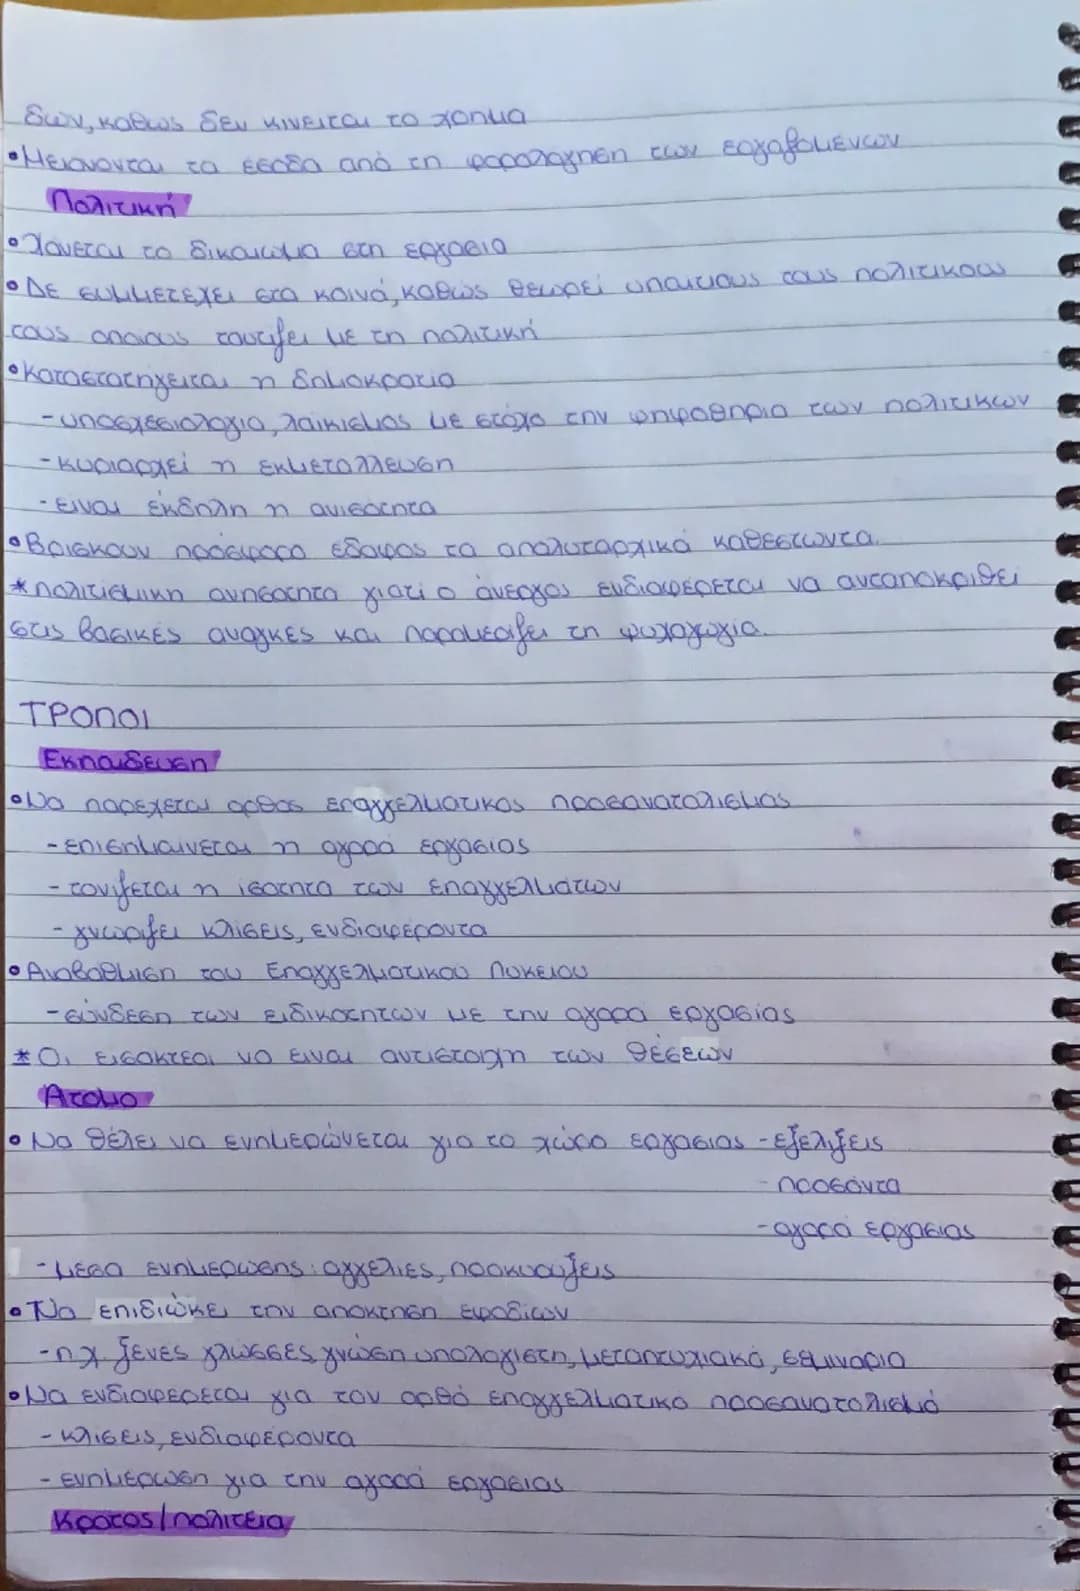 δων, καθως δεν κινειται το χρημα
• Μειωνονται τα εσοδα από τη φορολογηση των εργαζομενων
Πολιτική
• Χανεται το δικαιωμα στη εργασια
• Δε συμμετεχει στα κοινά, καθως θεωρεί υπαιτιους τους πολιτικους
τους οποιους ταυτιζει με τη πολιτική
• Καταστρατηγειται η δημοκρατια
- υποσχεσιολογια, λαϊκισμος με στόχο την ψηφοθηρια των πολιτικων
- κυριαρχεί η εκμεταλλευση
- ειναι έκδηλη η ανισοτητα
• Βρισκουν προσφορο εδαφος τα απολυταρχικά καθεστωντα.
* πολιτισμικη ανησοτητα γιατι ο άνεργος ενδιαφερεται να ανταποκριθεί
στις βασικές αναγκες και παραμεριζει τη ψυχαγωγια.
ΤΡΟΠΟΙ
Εκπαιδευση
• Να παρεχεται ορθος επαγγελματικος προσανατολισμος
- επισημαινεται η αγορα εργασιας
- τονιζεται η ισοτητα των επαγγελματων
- γνωριζει κλισεις, ενδιαφεροντα
• Αναβαθμιση του Επαγγελματικου Λυκειου
- σύνδεση των ειδικοτητων με την αγορα εργασίας
* Οι εισακτεοι να ειναι αντιστοιχη των θέσεων
Ατομο
• Να θέλει να ενημερώνεται για το χώρο εργασιας - εξελιξεις
- προσόντα
- αγορά εργασιας
- μεσα ενημερωσης: αγγελιες, προκυρυξεις
• Να επιδιώκει την αποκτηση εφοδιων
- π.χ. ξενες γλωσσες, γνωση υπολογιστη, μεταπτυχιακά, σεμιναρια
• Να ενδιαφερεται για τον ορθό επαγγελματικο προσανατολισμό
- κλισεις, ενδιαφεροντα
- ενημερωση για την αγορά εργασιας
Κρατος/πολιτεια